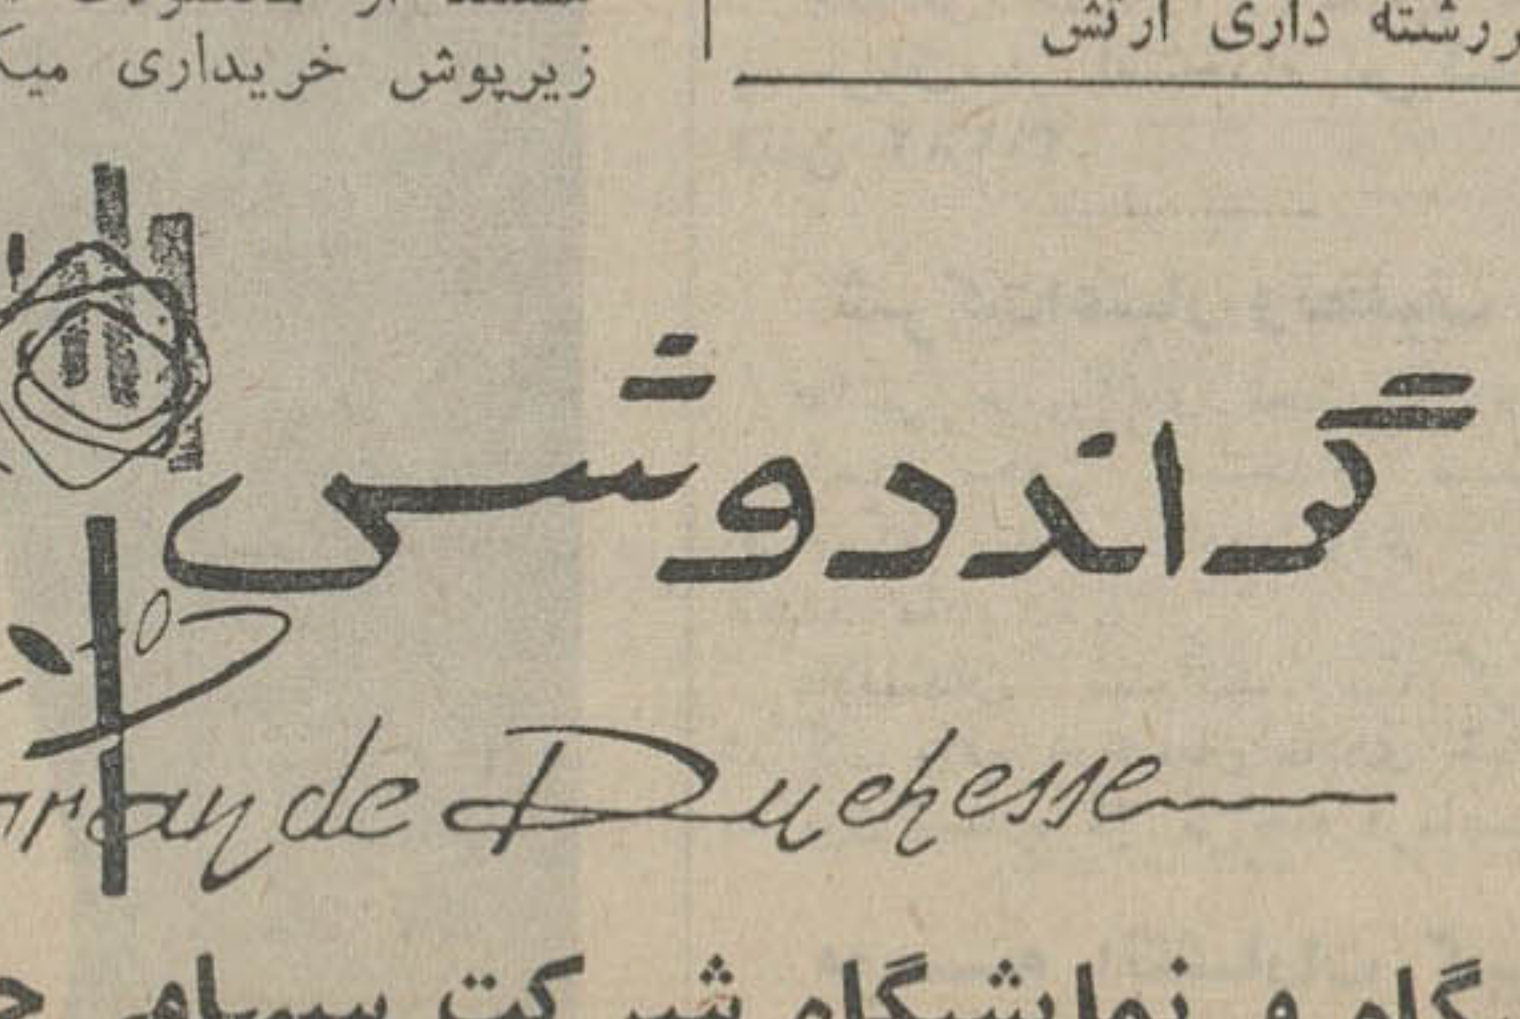 رشته داری ارتش
زیرپوش خریداری
گراندوش
Grande Duchesse
و نمایشگاه شرکت سهامی